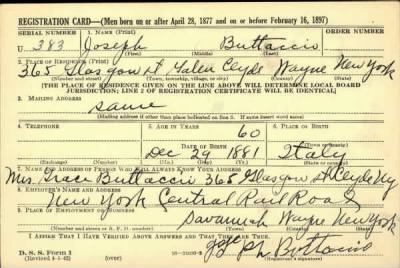 REGISTRATION CARD—(Men born on or after April 28, 1877 and on or before February 16, 1897)
SERIAL NUMBER 1. NAME (Print) ORDER NUMBER
U 383 Joseph Buttaccio
(First) (Middle) (Last)
2. PLACE OF RESIDENCE (Print)
365 Glasgow St Galen Clyde Wayne New York
(Number and street) (Town, township, village, or city) (County) (State)
[THE PLACE OF RESIDENCE GIVEN ON THE LINE ABOVE WILL DETERMINE LOCAL BOARD
JURISDICTION; LINE 2 OF REGISTRATION CERTIFICATE WILL BE IDENTICAL]
3. MAILING ADDRESS
same
[Mailing address if other than place indicated on line 2. If same insert word same]
4. TELEPHONE 5. AGE IN YEARS 6. PLACE OF BIRTH
60
DATE OF BIRTH
Dec 29 1881 Italy
7. NAME AND ADDRESS OF PERSON WHO WILL ALWAYS KNOW YOUR ADDRESS
Mrs. Grace Buttaccio 365 Glasgow St Clyde Ny
8. EMPLOYER'S NAME AND ADDRESS
New York Central Rail Road
9. PLACE OF EMPLOYMENT OR BUSINESS
Savannah Wayne New York
(Number and street or R. F. D. number) (Town) (County) (State)
I AFFIRM THAT I HAVE VERIFIED ABOVE ANSWERS AND THAT THEY ARE TRUE.
Joseph Buttaccio
D. S. S. Form 1
(Revised 4-1-42) (over) (Registrant's signature)